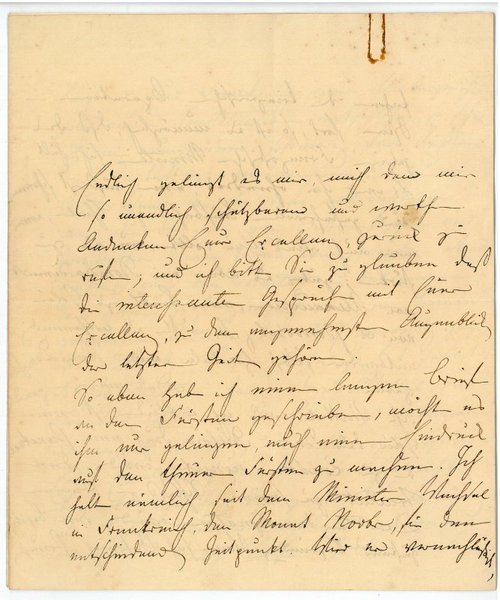 Endlich gelingt es mir, mich dem mir
so unendlich schätzbaren und werthen
Andenken Euer Excellenz, zurück zu
rufen; und ich bitte Sie zu glauben daß
die interessanten Gespräch mit Euer
Excellenz, zu den angenehmsten Augenblick
der letzten Zeit gehören.
So eben hab ich einen langen Brief
an den Fürsten geschrieben, möcht es
ihm nur gelingen, auch einen Eindruck
auf den theuren Fürsten zu machen. Ich
halte nämlich seit dem Minister Wechsel
in Frankreich, den Monat Novbr, für den
entscheidend Zeitpunkt. Wird er vernachläßigt,